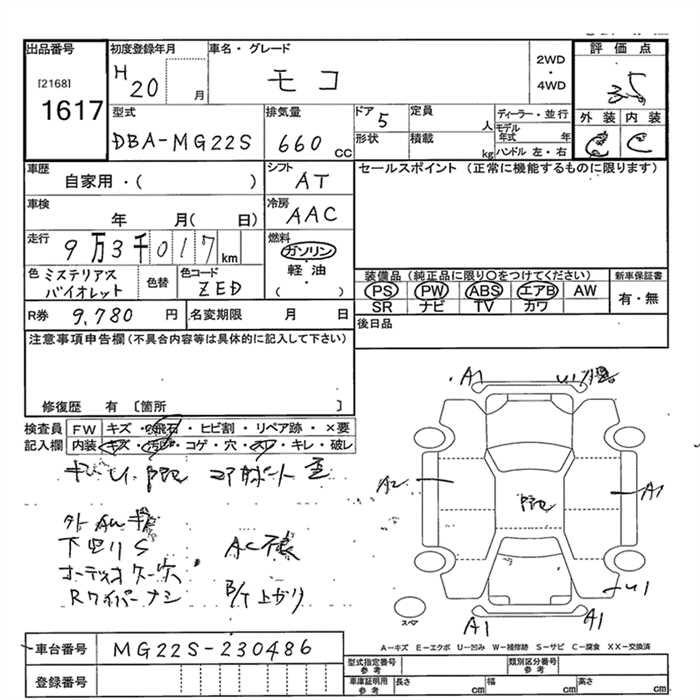 出品番号 初度登録年月 車名・グレード 評価点
[2168] 1617 H20 月 モコ 2WD・4WD 3.5
型式 排気量 ドア 定員 ディーラー・並行 外装 内装
DBA-MG22S 660 CC 5 人 モデル年式 年 C C
形状 積載 kg ハンドル 左・右
車歴 シフト セールスポイント (正常に機能するものに限ります)
自家用・( ) AT
車検 冷房
年 月( 日) AAC
走行 燃料
9万3千017km ガソリン・軽油( )
色 ミステリアスバイオレット 色替 色コード ZED
装備品(純正品に限り〇をつけてください) 新車保証書
PS PW ABS エアB AW 有・無
SR ナビ TV カワ
R券 9,780 円 名変期限 月 日
後日品
注意事項申告欄(不具合内容等は具体的に記入して下さい)
修復歴 有 〔箇所 〕
検査員記入欄 FW キズ・飛石・ヒビ割・リペア跡・×要
内装 キズ・汚レ・コゲ・穴・スレ・キレ・破レ
A1 U1
A2 A1
下回りS AC
Rワイパーナシ B/T上がり
U1
スペア A1 A1
A-キズ E-エクボ U-凹み W-補修跡 S-サビ C-腐食 XX-交換済
車台番号 MG22S-230486
登録番号
型式指定番号 参考 類別区分番号 参考
車庫証明用 参考 長さ cm 幅 cm 高さ cm